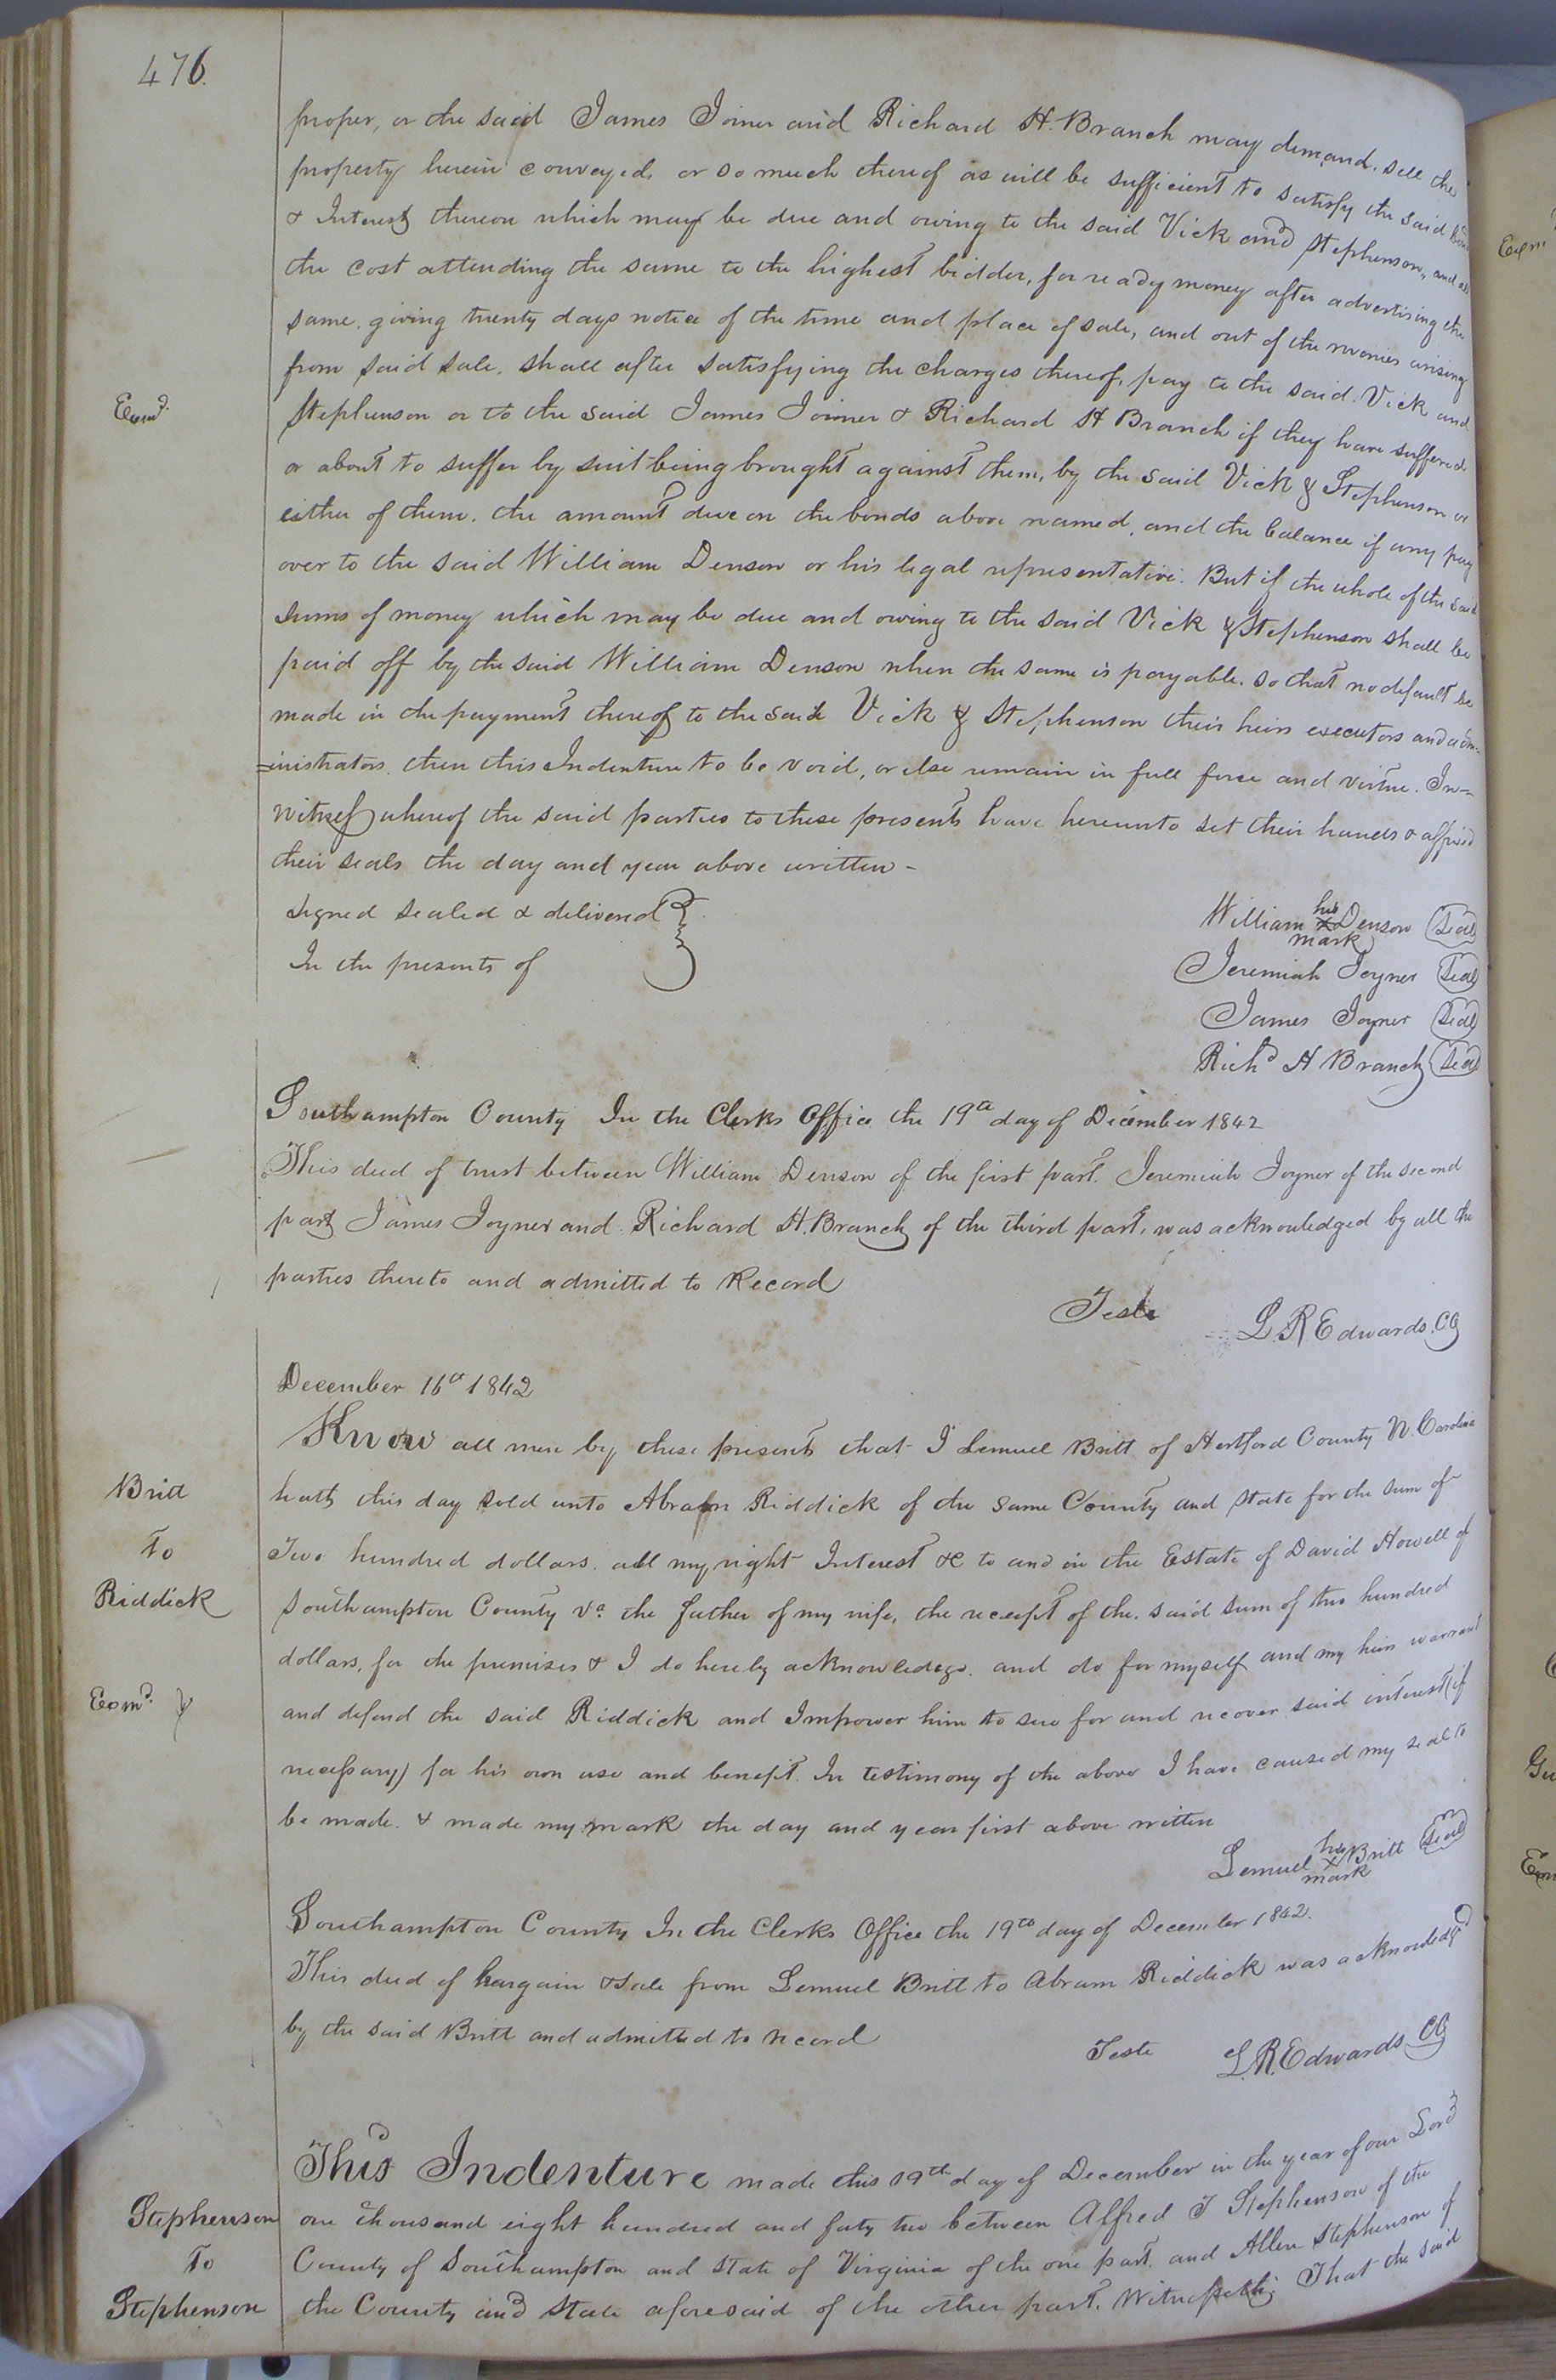 476.
proper, or the said James Joiner and Richard H. Branch may demand, sell the
property herein conveyed, or so much thereof as will be sufficient to satisfy the said
& Interest thereon which may be due and owing to the said Vick and Stephenson, and all
the cost attending the same to the highest bidder, for ready money after advertising the
same, giving twenty days notice of the time and place of sale, and out of the monies arising
from said sale, shall after satisfying the charges thereof, pay to the said Vick and
Exmd.
Stephenson or to the said James Joiner & Richard H Branch if they have suffered
or about to suffer by suit being brought against them, by the said Vick & Stephenson or
either of them, the amount due on the bonds above named, and the balance if any pay
over to the said William Denson or his legal representative. But if the whole of the said
sums of money which may be due and owing to the said Vick & Stephenson shall be
paid off by the said William Denson when the same is payable, so that no default be
made in the payment thereof to the said Vick & Stephenson their heirs executors and adm-
=inistrators, then this Indenture to be void, or else remain in full force and virtue. In=
witness whereof the said parties to these presents have hereunto set their hands & affixed
their seals the day and year above written -
Signed Sealed & delivered
In the presents of
William his x mark Denson Seal
Jeremiah Joyner Seal
James Joyner Seal
Richd H Branch Seal
Southampton County In the Clerks Office the 19th day of December 1842
This deed of trust between William Denson of the first part, Jeremiah Joyner of the second
part James Joyner and Richard H. Branch of the third part, was acknowledged by all the
parties thereto and admitted to Record
Teste L. R Edwards, CC
December 16th 1842
Know all men by these presents that I Lemuel Britt of Hertford County N. Carolina
Britt
To
Riddick
hath this day sold unto Abram Riddick of the same County and State for the sum of
Two hundred dollars, all my right Interest &c to and in the Estate of David Howell of
Southampton County Va. the father of my wife, the receipt of the said sum of two hundred
dollars, for the premises & I do hereby acknowledge, and do for myself and my heirs warrant
Exmd.
and defend the said Riddick and Impower him to sue for and recover said interest (if
necessary) for his own use and benefit. In testimony of the above I have caused my seal to
be made, & made my mark the day and year first above written
Lemuel his x mark Britt Seal
Southampton County In the Clerks Office the 19th day of December 1842.
This deed of bargain & Sale from Lemuel Britt to Abram Riddick was acknowledged
by the said Britt and admitted to record
Teste L. R. Edwards CC
This Indenture made this 19th day of December in the year of our Lord
Stephenson
To
Stephenson
one thousand eight hundred and forty two between Alfred J Stephenson of the
County of Southampton and State of Virginia of the one part, and Allen Stephenson of
the County and State aforesaid of the other part, Witnesseth; That the said